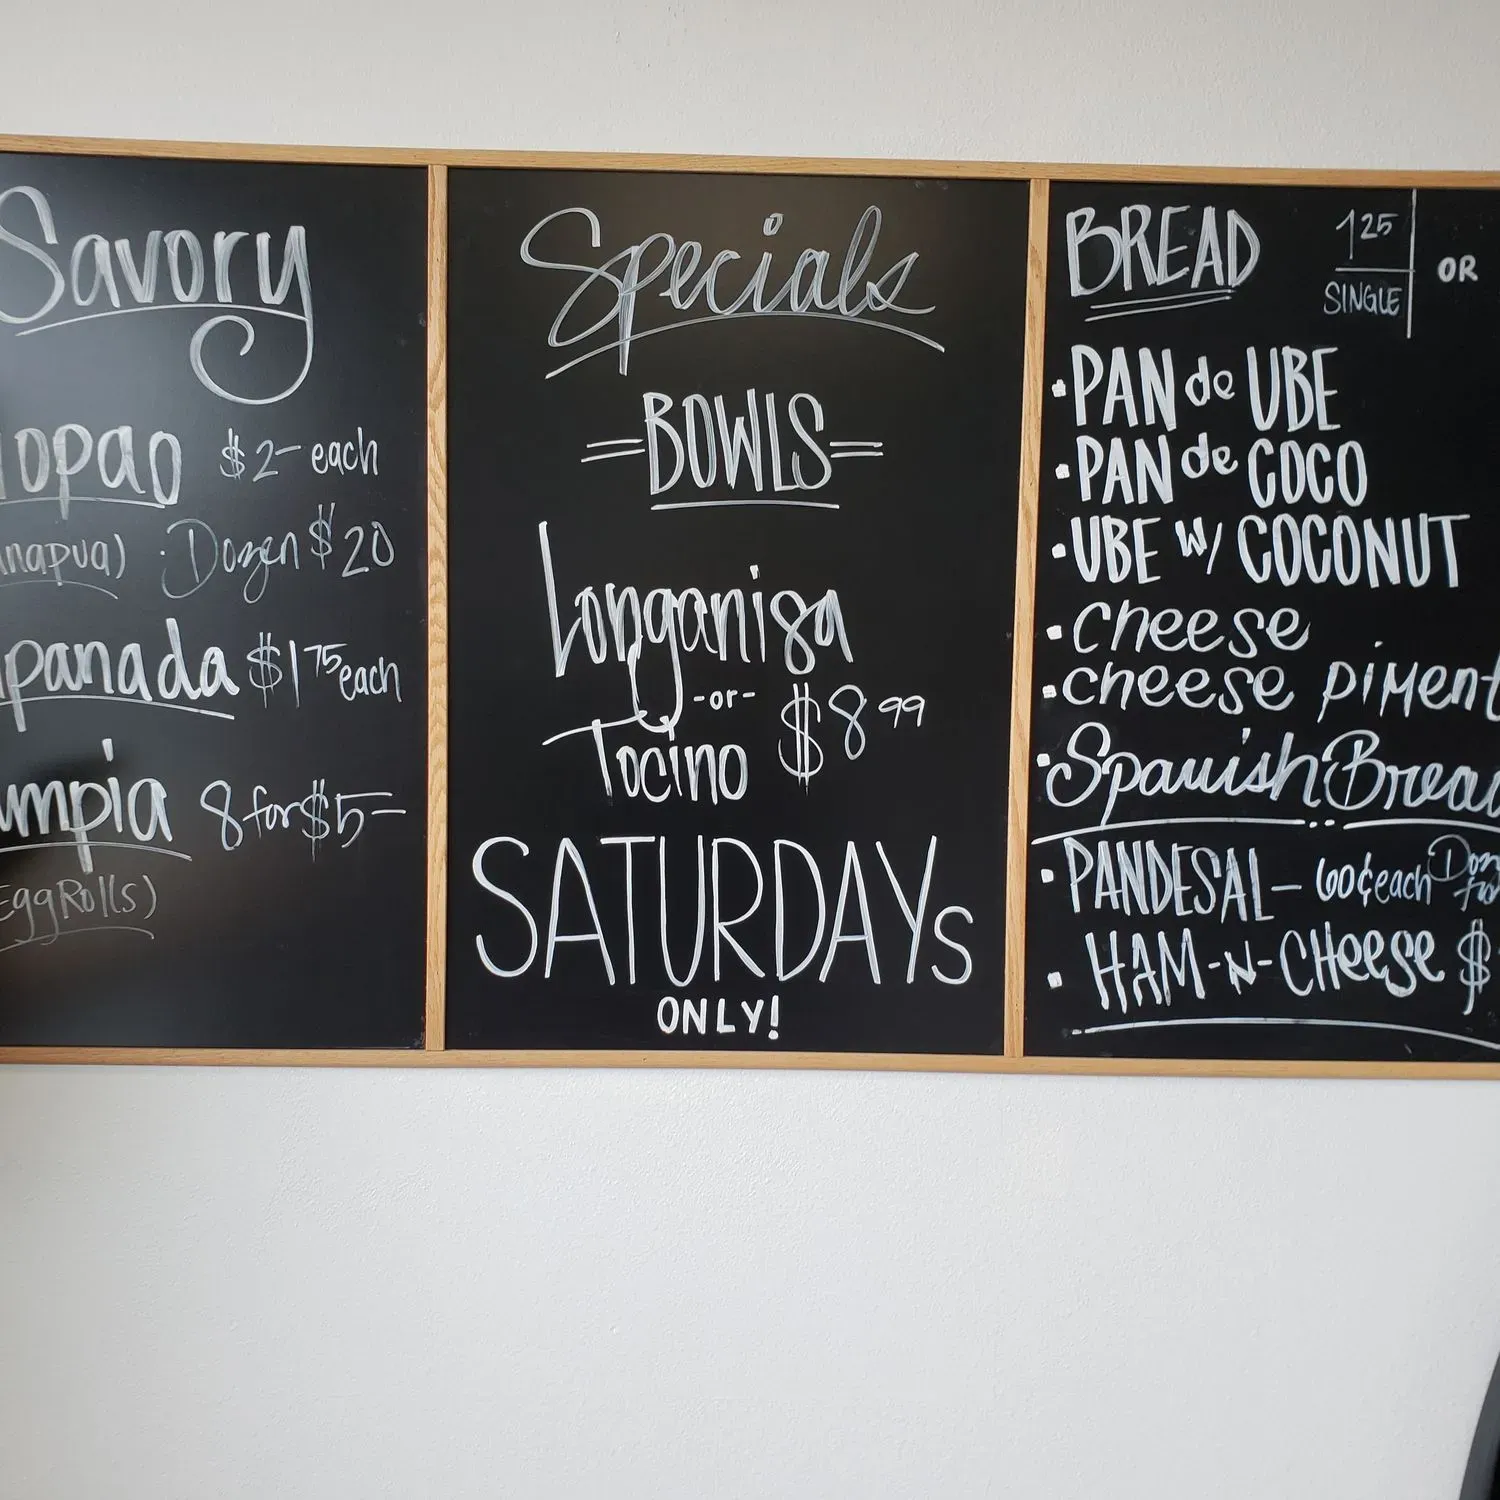 Savory
opao $2- each
napua) · Dozen $20
panada $1 75 each
umpia 8 for $5-
EggRolls)
Specials
=BOWLS=
Longanisa
-or-
Tocino $8 99
SATURDAYs
ONLY!
BREAD 1 25 SINGLE OR
· PAN de UBE
· PAN de COCO
· UBE W/ COCONUT
· cheese
· cheese piment
· Spanish Bread
· PANDESAL - 60¢ each
· HAM-N-CHeese $